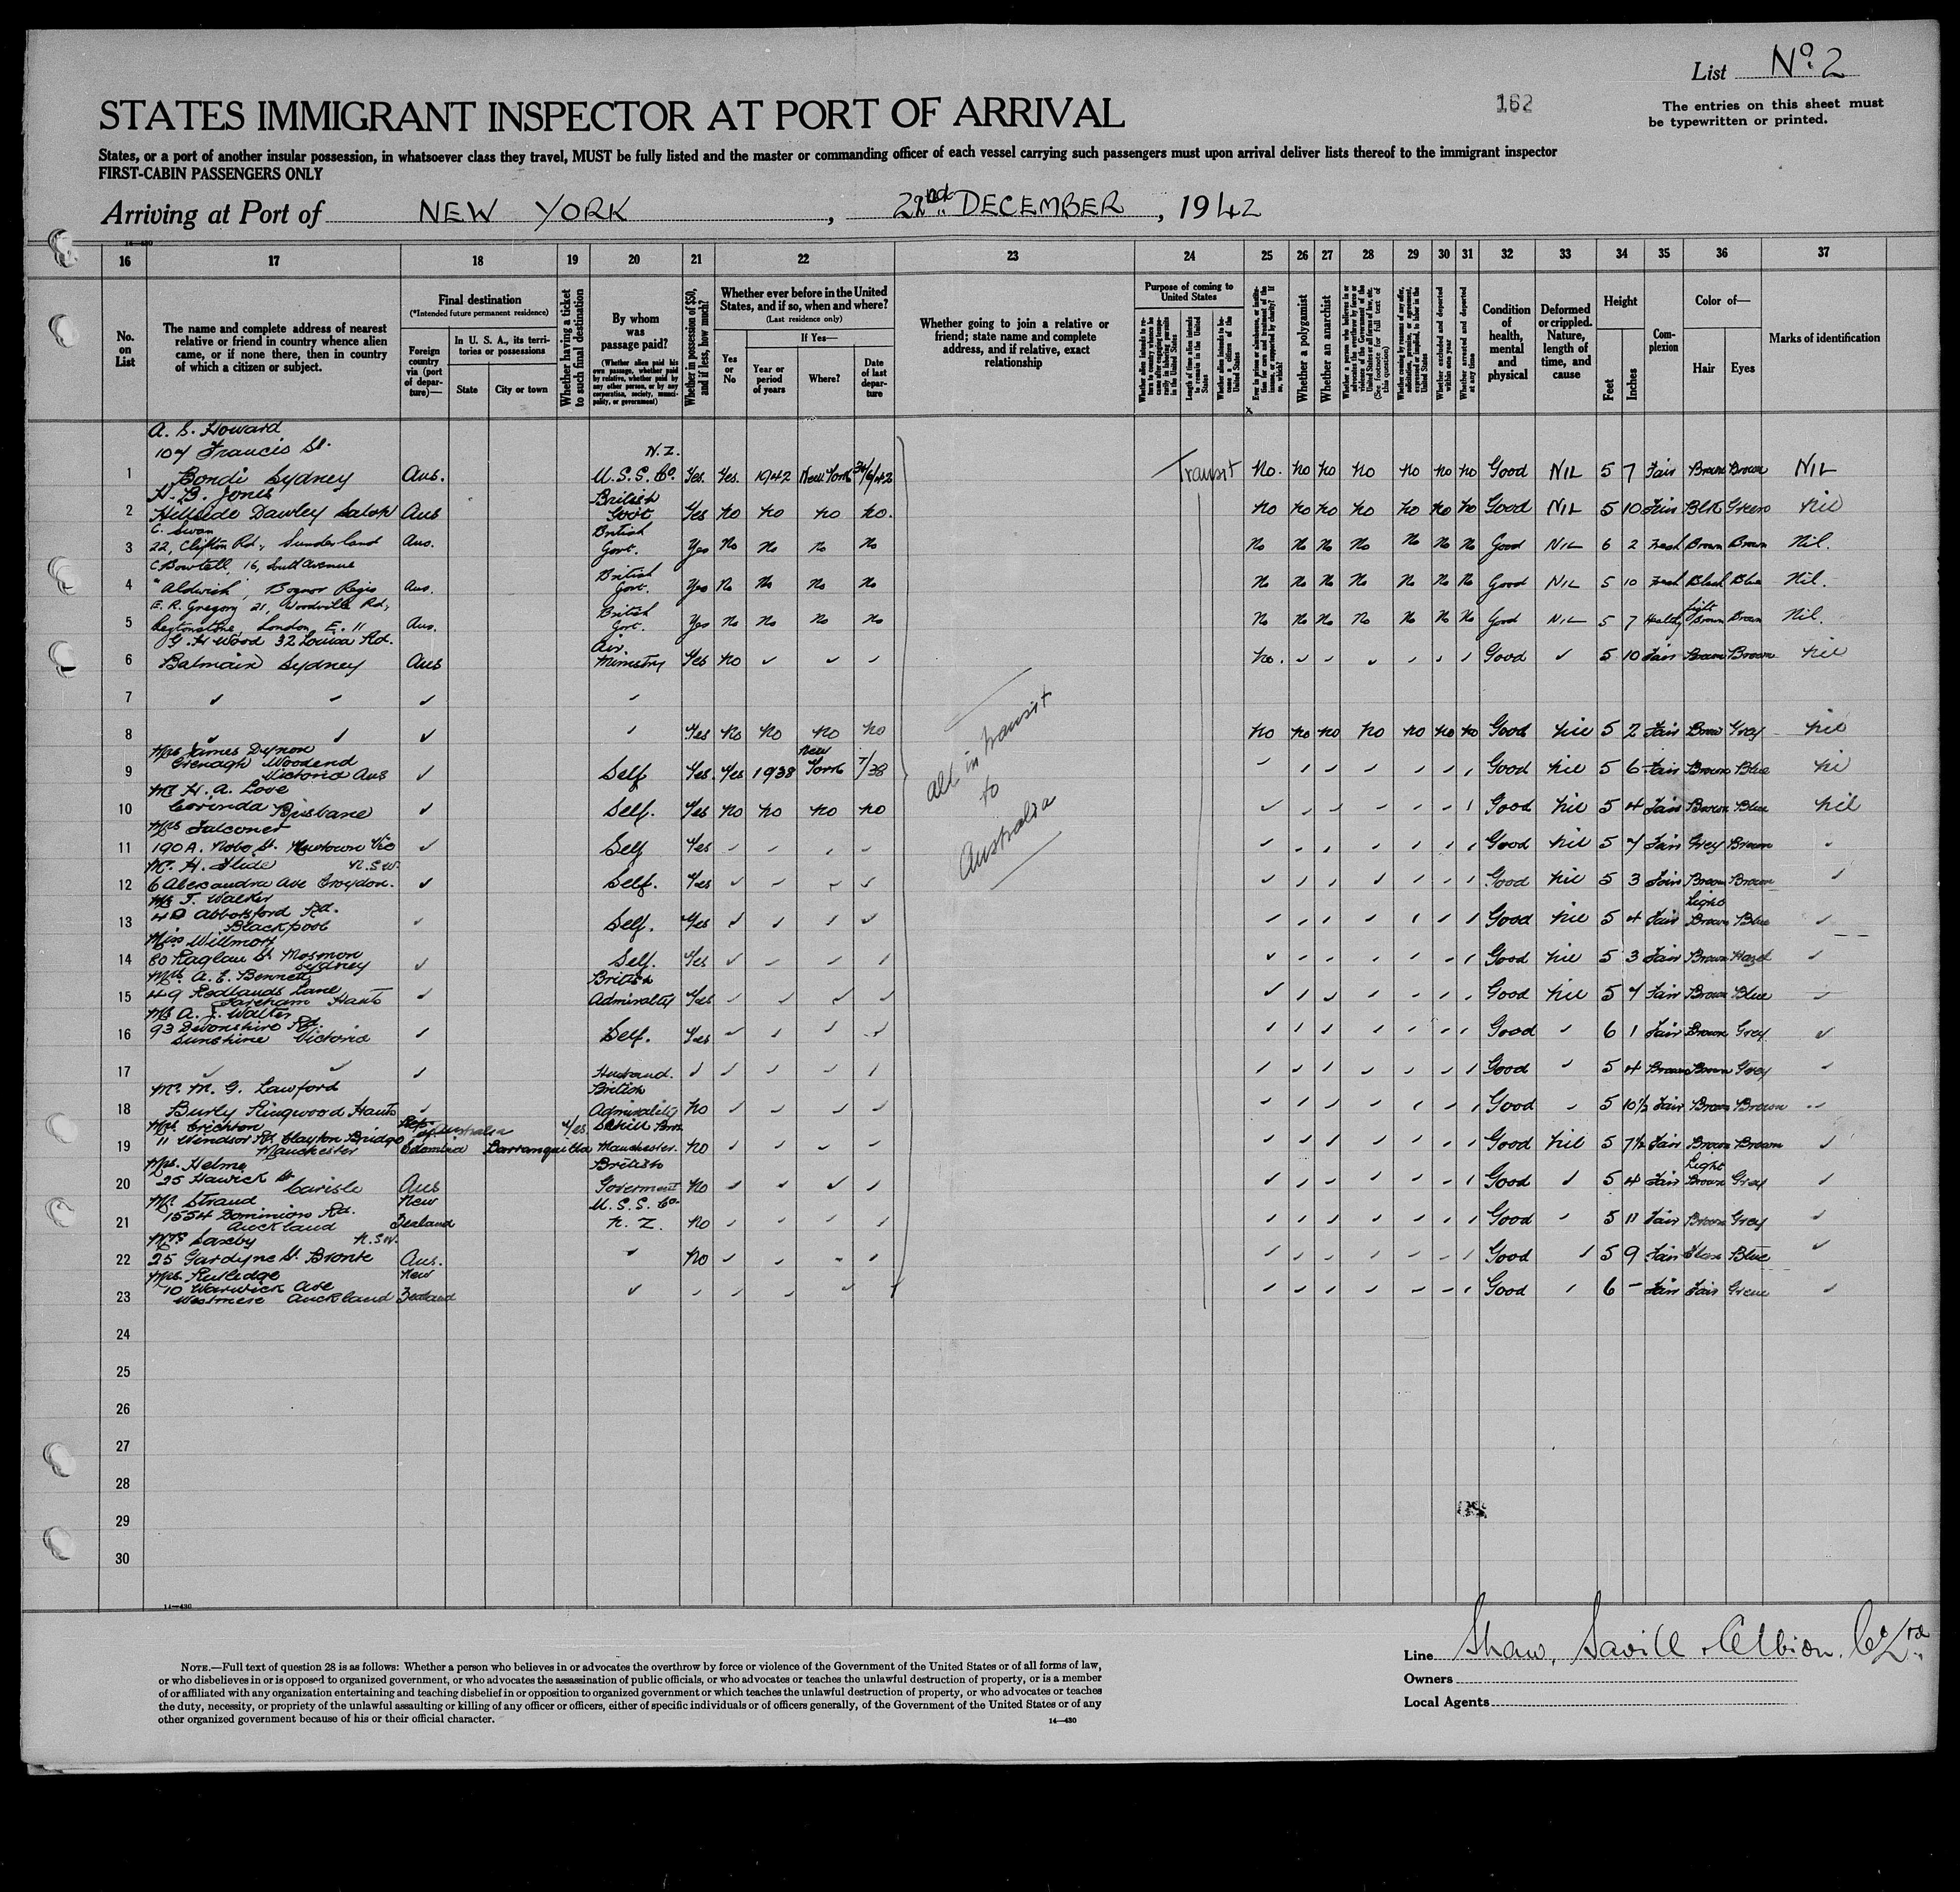 List Nº 2
STATES IMMIGRANT INSPECTOR AT PORT OF ARRIVAL
162
The entries on this sheet must
be typewritten or printed.
States, or a port of another insular possession, in whatsoever class they travel, MUST be fully listed and the master or commanding officer of each vessel carrying such passengers must upon arrival deliver lists thereof to the immigrant inspector
FIRST-CABIN PASSENGERS ONLY
Arriving at Port of NEW YORK, 22nd DECEMBER, 1942
14—430
16 17 18 19 20 21 22 23 24 25 26 27 28 29 30 31 32 33 34 35 36 37
No. on List
The name and complete address of nearest relative or friend in country whence alien came, or if none there, then in country of which a citizen or subject.
Final destination
(*Intended future permanent residence)
Foreign country via (port of departure)—
In U. S. A., its territories or possessions
State
City or town
Whether having a ticket to such final destination
By whom was passage paid?
(Whether alien paid his own passage, whether paid by relative, whether paid by any other person, or by any corporation, society, municipality, or government)
Whether in possession of $50, and if less, how much?
Whether ever before in the United States, and if so, when and where?
(Last residence only)
Yes or No
If Yes—
Year or period of years
Where?
Date of last departure
Whether going to join a relative or friend; state name and complete address, and if relative, exact relationship
Purpose of coming to United States
Length of time alien intends to remain in the United States
Whether alien intends to become a citizen of the United States
Whether a polygamist
Whether an anarchist
Whether excluded and deported within one year
Whether arrested and deported at any time
Condition of health, mental and physical
Deformed or crippled. Nature, length of time, and cause
Height
Feet
Inches
Complexion
Color of—
Hair
Eyes
Marks of identification
A. S. Howard
107 Francis St. N.Z.
1 Bondi Sydney Aus. U.S.S. Co. Yes. Yes. 1942 New York Transit No. no no no no no no Good NIL 5 7 Fair Brown Brown NIL
H. B. Jones British
2 Hillside Dawley Salop Aus Govt Yes no no no no. no no no no no no no Good NIL 5 10 Fair Blk Green nil
C. Swan British
3 22, Clifton Rd., Sunderland Aus. Govt. Yes No No No No No No No No No No No Good NIL 6 2 Fresh Brown Brown Nil.
C Bowtell, 16, South Avenue British
4 "Aldwick", Bognor Regis Aus. Govt. Yes No No No No No No No No No No No Good NIL 5 10 Fresh Black Blue Nil.
E. R. Gregory 21, Woodville Rd, British light
5 Leytonstone, London, E. 11 Aus. Govt. Yes No No No No No No No No No No No Good NIL 5 7 Healthy Brown Brown Nil.
G. H Wood 32 Louisa Rd. Air
6 Balmain Sydney Aus Ministry Yes no ✓ ✓ ✓ no. ✓ ✓ ✓ ✓ ✓ ✓ Good ✓ 5 10 Fair Brown Brown nil
7 ✓ ✓ ✓ ✓
8 ✓ ✓ ✓ ✓ Yes no no no no no no no no no no no Good nil 5 2 Fair Brow Grey nil
Mrs James Dynon
Grenagh Woodend New
9 Victoria Aus ✓ Self Yes Yes 1938 York 7/38 Good nil 5 6 Fair Brown Blue ni
Mr H. A. Love
10 Corinda Brisbane ✓ Self. Yes no no no no Good nil 5 4 Fair Brown Blue nil
Mrs Falconer
11 190A. Noble St. Newtown Vic ✓ Self Yes Good nil 5 7 Fair Grey Brown
Mr. H. Slide N.S.W.
12 6 Alexandra Ave Croydon. ✓ Self. Yes Good nil 5 3 Fair Brown Brown
Mr J. Walker Light
4 Abbotsford Rd.
13 Blackpool ✓ Self. Yes Good nil 5 4 Fair Brown Blue
Miss Willmott
14 80 Raglan St Mosman Sydney ✓ Self. Yes Good nil 5 3 Fair Brown Hazel
Mrs. A. E. Bennett British
15 49 Redlands Lane Fareham Hants ✓ Admiralty Yes Good nil 5 7 Fair Brown Blue
Mr A. J. Walter
93 Devonshire Rd.
16 Sunshine Victoria ✓ Self. Yes Good 6 1 Fair Brown Grey
17 ✓ ✓ ✓ Husband. ✓ Good 5 4 Brown Brown Grey
Mr. M. G. Lawford British
18 Burly Ringwood Hants ✓ Admirality no Good 5 10½ Fair Brown Brown
Mrs. Crichton Rep. Yes.
11 Windsor Rd. Clayton Bridge
19 Manchester Colombia Barranquilla Manchester. no Good nil 5 7½ Fair Brown Brown
Mrs. Helme British Light
20 25 Hawick St Carisle Aus Goverment no Good ✓ 5 4 Fair Brown Grey
Mr. Strand New U.S.S. Co
1554 Dominion Rd.
21 Auckland Zealand N. Z. no Good 5 11 Fair Brown Grey
Mrs Saxby N.S.W.
22 25 Gardyne St. Bronte Aus. ✓ no Good 5 9 Fair Blue
Mrs. Rutledge New
10 Warwick Ave
23 Westmere Auckland Zealand ✓ Good 6 – Fair Fair Green
all in transit
to
Australia
24
25
26
27
28
29
30
14—430
Line Shaw, Savill & Albion. Co Ltd.
Owners
Local Agents
NOTE.—Full text of question 28 is as follows: Whether a person who believes in or advocates the overthrow by force or violence of the Government of the United States or of all forms of law,
or who disbelieves in or is opposed to organized government, or who advocates the assassination of public officials, or who advocates or teaches the unlawful destruction of property, or is a member
of or affiliated with any organization entertaining and teaching disbelief in or opposition to organized government or which teaches the unlawful destruction of property, or who advocates or teaches
the duty, necessity, or propriety of the unlawful assaulting or killing of any officer or officers, either of specific individuals or of officers generally, of the Government of the United States or of any
other organized government because of his or their official character.
14—430